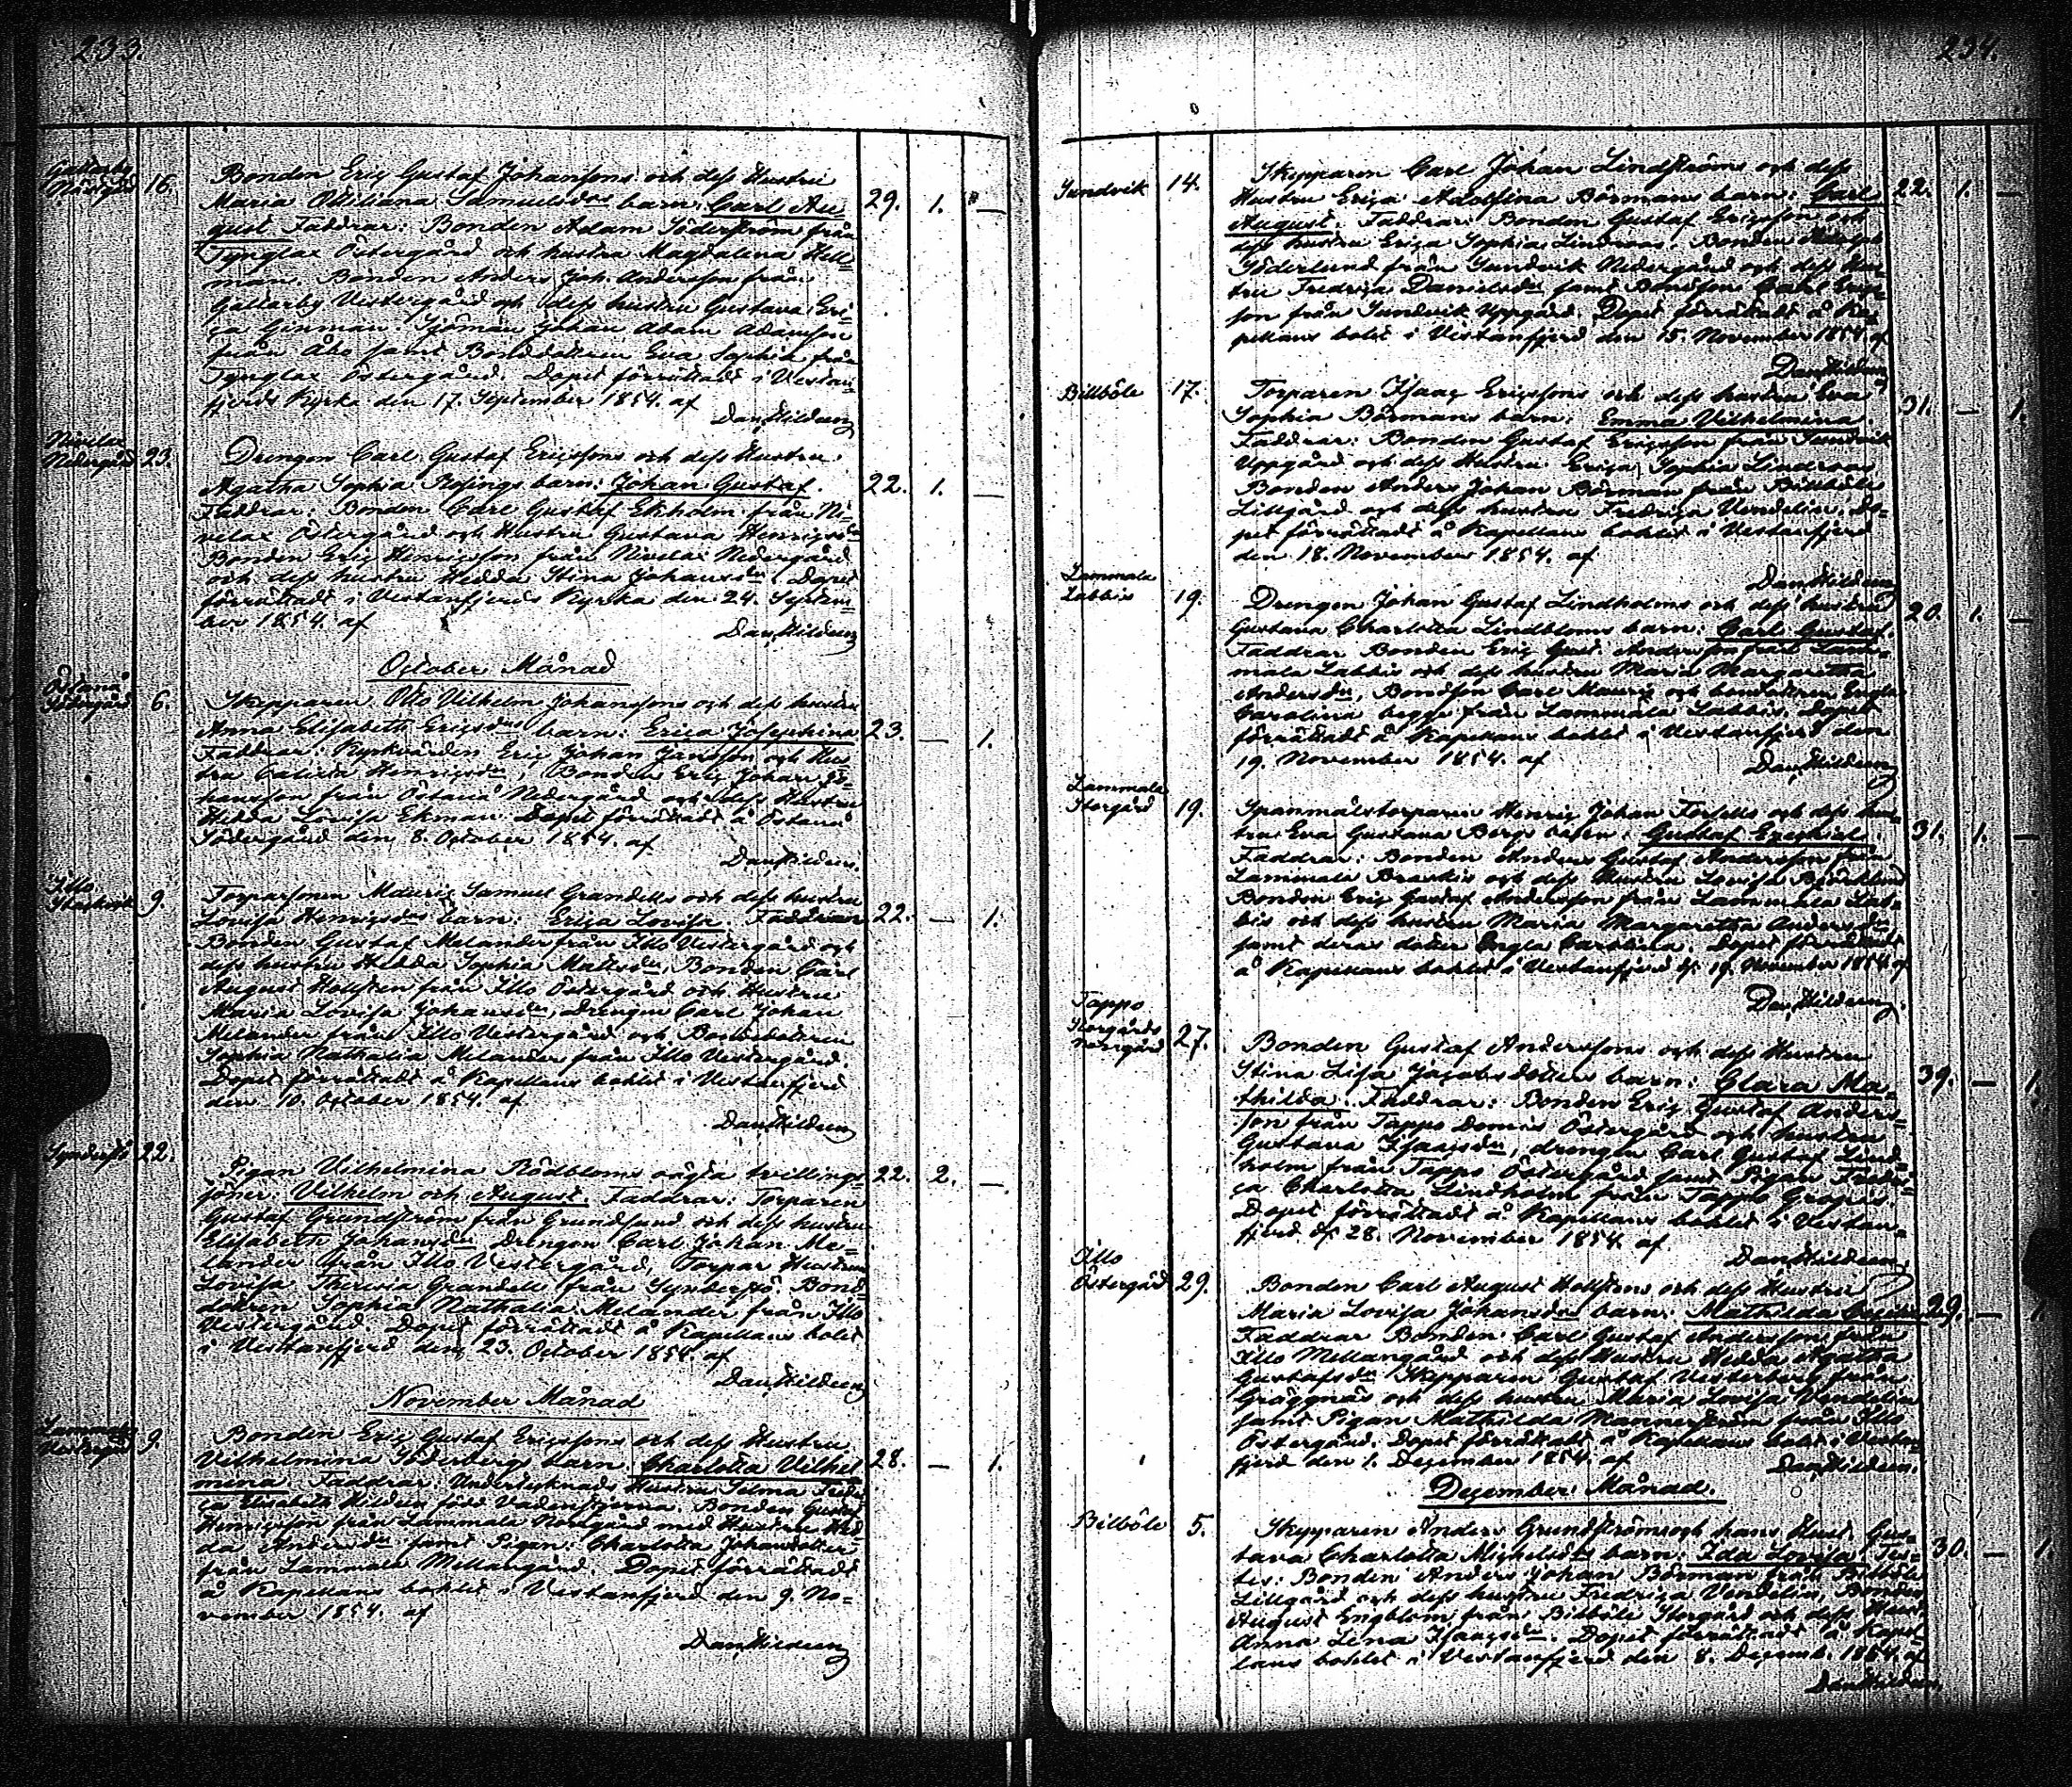 233.
Gallarby
Norrgård 16.
Bonden Eric Gustaf Johanssons och dess Hustru
Maria Ottiliana Samuelsdrs barn: Carl Au= 29. 1. —
gust. Faddrar: Bonden Adam Söderström från
Tynglax Östergård och hustru Magdalena Hell=
man. Bonden Anders Joh. Andersson från
Gallarby Vestergård och dess hustru Gustava Eri=
ca Ginman. Sjöman Johan Adam Adamsson
från Åbo samt Bonddottren Eva Sophia från
Tynglax Östergård. Dopet förrättadt i Vestan=
fjerds Kyrka den 17. September 1854. af
Dan. Hildeen
Nivelax
Nedergård 23.
Drengen Carl Gustaf Ericssons och dess Hustru
Agatha Sophia Rosings barn: Johan Gustaf. 22. 1. —
Faddrar: Bonden Carl Gustaf Ekholm från Ni=
velax Östergård och Hustru Gustava Henricsdr
Bonden Eric Henricsson från Nivelax Nedergård
och dess hustru Hedda Stina Johansdr. Dopet
förrättadt i Vestanfjerds Kyrka den 24. Septem=
ber 1854. af
Dan. Hildeen
October Månad
Östanå
Södergård 6.
Skepparen Otto Vilhelm Johanssons och dess hustru
Anna Elisabeth Ericsdrs barn: Erica Josephina 23. — 1.
Faddrar: Kyrkvärden Eric Johan Jansson och Hus=
tru Calixta Henricsdr, Bonden Eric Johan Jo=
hansson från Östanå Nedergård och dess Hustru
Hedda Lovisa Ekman. Dopet förrättadt å Östanå
Södergård den 8. October 1854. af
Dan. Hildeen.
Illo 9.
Torparsonen Mauritz Samuel Grandells och dess hustru
Lovisa Henricsdrs barn: Erica Lovisa. Faddrar 22. — 1.
Bonden Gustaf Melander från Illo Vestergård och
dess hustru Hedda Sophia Mattsdr, Bonden Carl
August Hollsten från Illo Östergård och Hustru
Maria Lovisa Johansdr, Drengen Carl Johan
Melander från Illo Vestergård och Bonddottren
Sophia Nathalia Melander från Illo Vestergård.
Dopet förrättadt å Kapellans bohlet i Vestanfjerd
den 10. October 1854. af
Dan. Hildeen
Synderstö 22.
Pigan Vilhelmina Rödbloms oägta tvillings= 22. 2. —.
söner: Vilhelm och August. Faddrar: Torparen
Gustaf Grundström från Grundsund och dess hustru
Elisabeth Johansdr. Drengen Carl Johan Me=
lander från Illo Vestergård, Torpar Hustrun
Lovisa Theresia Grandell från Synderstö. Bond=
dottren Sophia Nathalia Melander från Illo
Vestergård. Dopet förrättadt å Kapellans bolet
i Vestanfjerd den 23. October 1854. af
Dan. Hildeen
November Månad
Lammala
Vestergård 9.
Bonden Eric Gustaf Ericssons och dess Hustru
Vilhelmina Söderbergs barn: Charlotta Vilhel= 28. — 1.
mina. Faddrar: Undertecknads Hustru Selma Fredri=
ca Elisabeth Hildeen född Vadenstjerna. Bonden Gustaf
Henricsson från Lammala Norrgård med Hustru Hed=
da Andersdr samt Pigan: Charlotta Johansdotter
från Lammala Mellangård. Dopet förrättadt
å Kapellans bohlet i Vestanfjerd den 9. No=
vember 1854. af
Dan. Hildeen
234.
Sundvik 14.
Skepparen Carl Johan Lindströms och dess
Hustru Erica Adolfina Börmans barn: Carl 22. 1. —
August. Faddrar: Bonden Gustaf Ericsson och
dess hustru Erica Sophia Lindroos. Bonden Adolph
Söderlund från Sundvik Nedergård och dess Hus=
tru Fredrica Danielsdr samt Bondson Carl Erics=
son från Sundvik Uppgård. Dopet förrättadt å Ka=
pellans bolet i Vestanfjerd den 15. November 1854. af
Dan. Hildeen
Billböle 17.
Torparen Isaac Ericssons och dess hustru Eva
Sophia Börmans barn: Emma Vilhelmina. 31. — 1.
Faddrar: Bonden Gustaf Ericsson från Sundvik
Uppgård och dess Hustru Erica Sophia Lindroos
Bonden Anders Johan Börman från Billböle
Lillgård och dess hustru Fredrica Vendelin. Do=
pet förrättadt å Kapellans bohlet i Vestanfjerd
den 18. November 1854. af
Dan. Hildeen
Lammala
Labbis 19.
Drengen Johan Gustaf Lindholms och dess hustru
Gustava Charlotta Lindbloms barn: Carl Gustaf. 20. 1. —
Faddrar Bonden Eric Gust. Andersson från Lam=
mala Labbis och dess hustru Maria Margaretha
Andersdr, Bondson Carl Mauritz och bonddottren Engla
Carolina begge från Lammala Labbis. Dopet
förrättadt å Kapellans bohlet i Vestanfjerd den
19. November 1854. af
Dan. Hildeen
Lammala
Storgård 19.
Spanmålstorparen Henric Johan Forsells och dess hus=
tru Eva Gustava Bergs barn: Gustaf Ezechiel. 31. 1. —
Faddrar: Bonden Anders Gustaf Andersson från
Lammala Braskis och dess Hustru Lovisa Björklund
Bonden Eric Gustaf Andersson från Lammala Lab=
bis och dess hustru Maria Margaretha Andersdr
samt deras dotter Engla Carolina. Dopet förrättadt
å Kapellans bohlet i Vestanfjerd d. 19. November 1854. af
Dan. Hildeen.
Tappo
Storgårds
Norrgård 27.
Bonden Gustaf Anderssons och dess Hustru
Stina Lisa Jacobsdotters barn: Clara Ma= 39. — 1.
thilda. Faddrar: Bonden Eric Gustaf Anders=
son från Tappo Domars Östergård och hustru
Gustava Isaacsdr, drengen Carl Gustaf Lind=
holm från Tappo Östergård samt Pigan Fredri=
ca Charlotta Lindholm från Tappo
Dopet förrättadt å Kapellans bohlet i Vestan=
fjerd d. 28. November 1854. af
Dan. Hildeen
Illo
Östergård 29.
Bonden Carl August Hollstens och dess Hustru
Maria Lovisa Johansdrs barn: Mathilda 29. — 1.
Faddrar Bonden Carl Gustaf Andersson från
Illo Mellangård och dess Hustru Hedda Agatha
Gustafsdr Skepparen Gustaf Vesterberg från
Gräggnäs och dess hustru Maria Lovisa Vendelin
samt Pigan Mathilda Mannerström från Illo
Östergård. Dopet förrättadt å Kapellans bolet i Vestan=
fjerd den 1. December 1854. af Dan. Hildeen.
Dezember Månad.
Bilböle 5.
Skepparen Anders Grundströms och hans Hust. Gus=
tava Charlotta Michelsdrs barn: Ida Lovisa. Tes= 30. — 1.
tes: Bonden Anders Johan Börman från Bilböle
Lillgård och dess hustru Fredrica Vendelin, Bonden
August Engblom från Bilböle Storgård och dess Hust.
Anna Lena Isaacsdr. Dopet förrättadt å Kapel=
lans bohlet i Vestanfjerd den 8. Decemb. 1854. af
Dan. Hildeen.